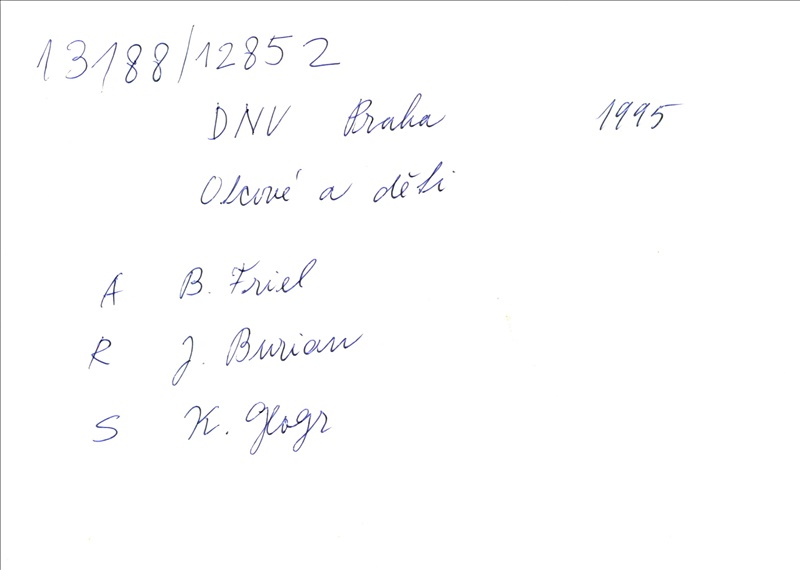 13188/12852
DNV Praha 1995
Otcové a děti
A B. Friel
R J. Burian
S K. Glogr